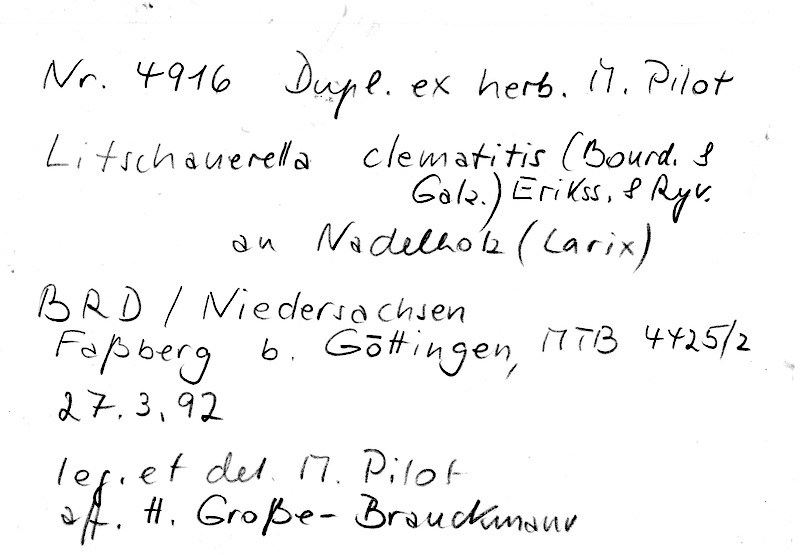 Nr. 4916 Dupl. ex herb. M. Pilot
Litschauerella clematitis (Bourd. &
Galz.) Erikss. & Ryv.
an Nadelholz (Larix)
BRD / Niedersachsen
Faßberg b. Göttingen, MTB 4425/2
27.3.92
leg. et det. M. Pilot
aff. H. Große-Brauckmann